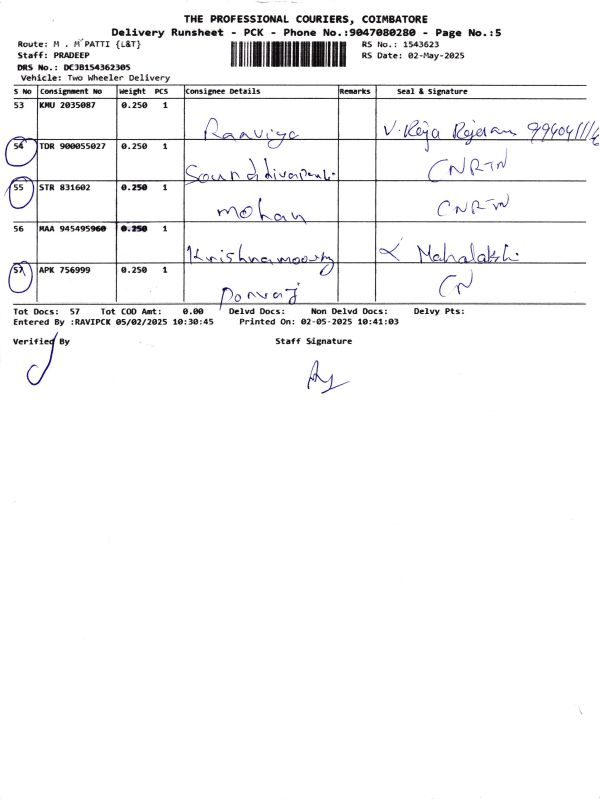 THE PROFESSIONAL COURIERS, COIMBATORE
Delivery Runsheet - PCK - Phone No.:9047080280 - Page No.:5
Route: M . M PATTI {L&T} RS No.: 1543623
Staff: PRADEEP RS Date: 02-May-2025
DRS No.: DC3B154362305
Vehicle: Two Wheeler Delivery
S No Consignment No Weight PCS Consignee Details Remarks Seal & Signature
53 KMU 2035087 0.250 1
Raaviya V. Raja Rajeram
54 TDR 900055027 0.250 1
CNRTN
55 STR 831602 0.250 1
mohan CNRTN
56 MAA 945495960 0.250 1
Krishnamoorthy Mahalakshi
57 APK 756999 0.250 1
Ponraj CN
Tot Docs: 57 Tot COD Amt: 0.00 Delvd Docs: Non Delvd Docs: Delvy Pts:
Entered By :RAVIPCK 05/02/2025 10:30:45 Printed On: 02-05-2025 10:41:03
Verified By Staff Signature